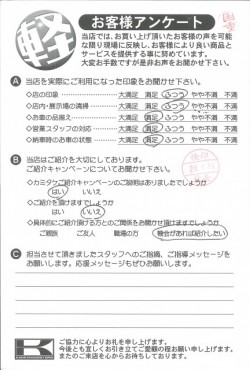 軽
お客様アンケート
当店では、お買い上げ頂いたお客様の声を可能
な限り現場に反映し、お客様により良い商品と
サービスを提供する事に努めています。
大変お手数ですが是非お声をお聞かせ下さい。
A 当店を実際にご利用になった印象をお聞かせ下さい。
◇店の印象 大満足 満足 ふつう やや不満 不満
◇店内・展示場の清掃 大満足 満足 ふつう やや不満 不満
◇お車の品揃え 大満足 満足 ふつう やや不満 不満
◇営業スタッフの対応 大満足 満足 ふつう やや不満 不満
◇納車時のお車の状態 大満足 満足 ふつう やや不満 不満
B 当店はご紹介を大切にしております。
ご紹介キャンペーンについてお聞かせ下さい。
◇カミタケご紹介キャンペーンのご説明はありましたでしょうか
はい いいえ
◇ご紹介を頂けますでしょうか
はい いいえ
◇具体的にご紹介頂ける方とのご関係をお聞かせ頂けますでしょうか
ご親戚 ご友人 職場の方 機会があれば紹介したい
C 担当させて頂きましたスタッフへのご指摘、ご指導メッセージを
お願いします。応援メッセージもぜひお願いします。
K
ご協力に心よりお礼を申し上げます。
今後とも宜しくお引き立てご愛顧の程お願い申し上げます。
またのご来店を心からお待ちしております。